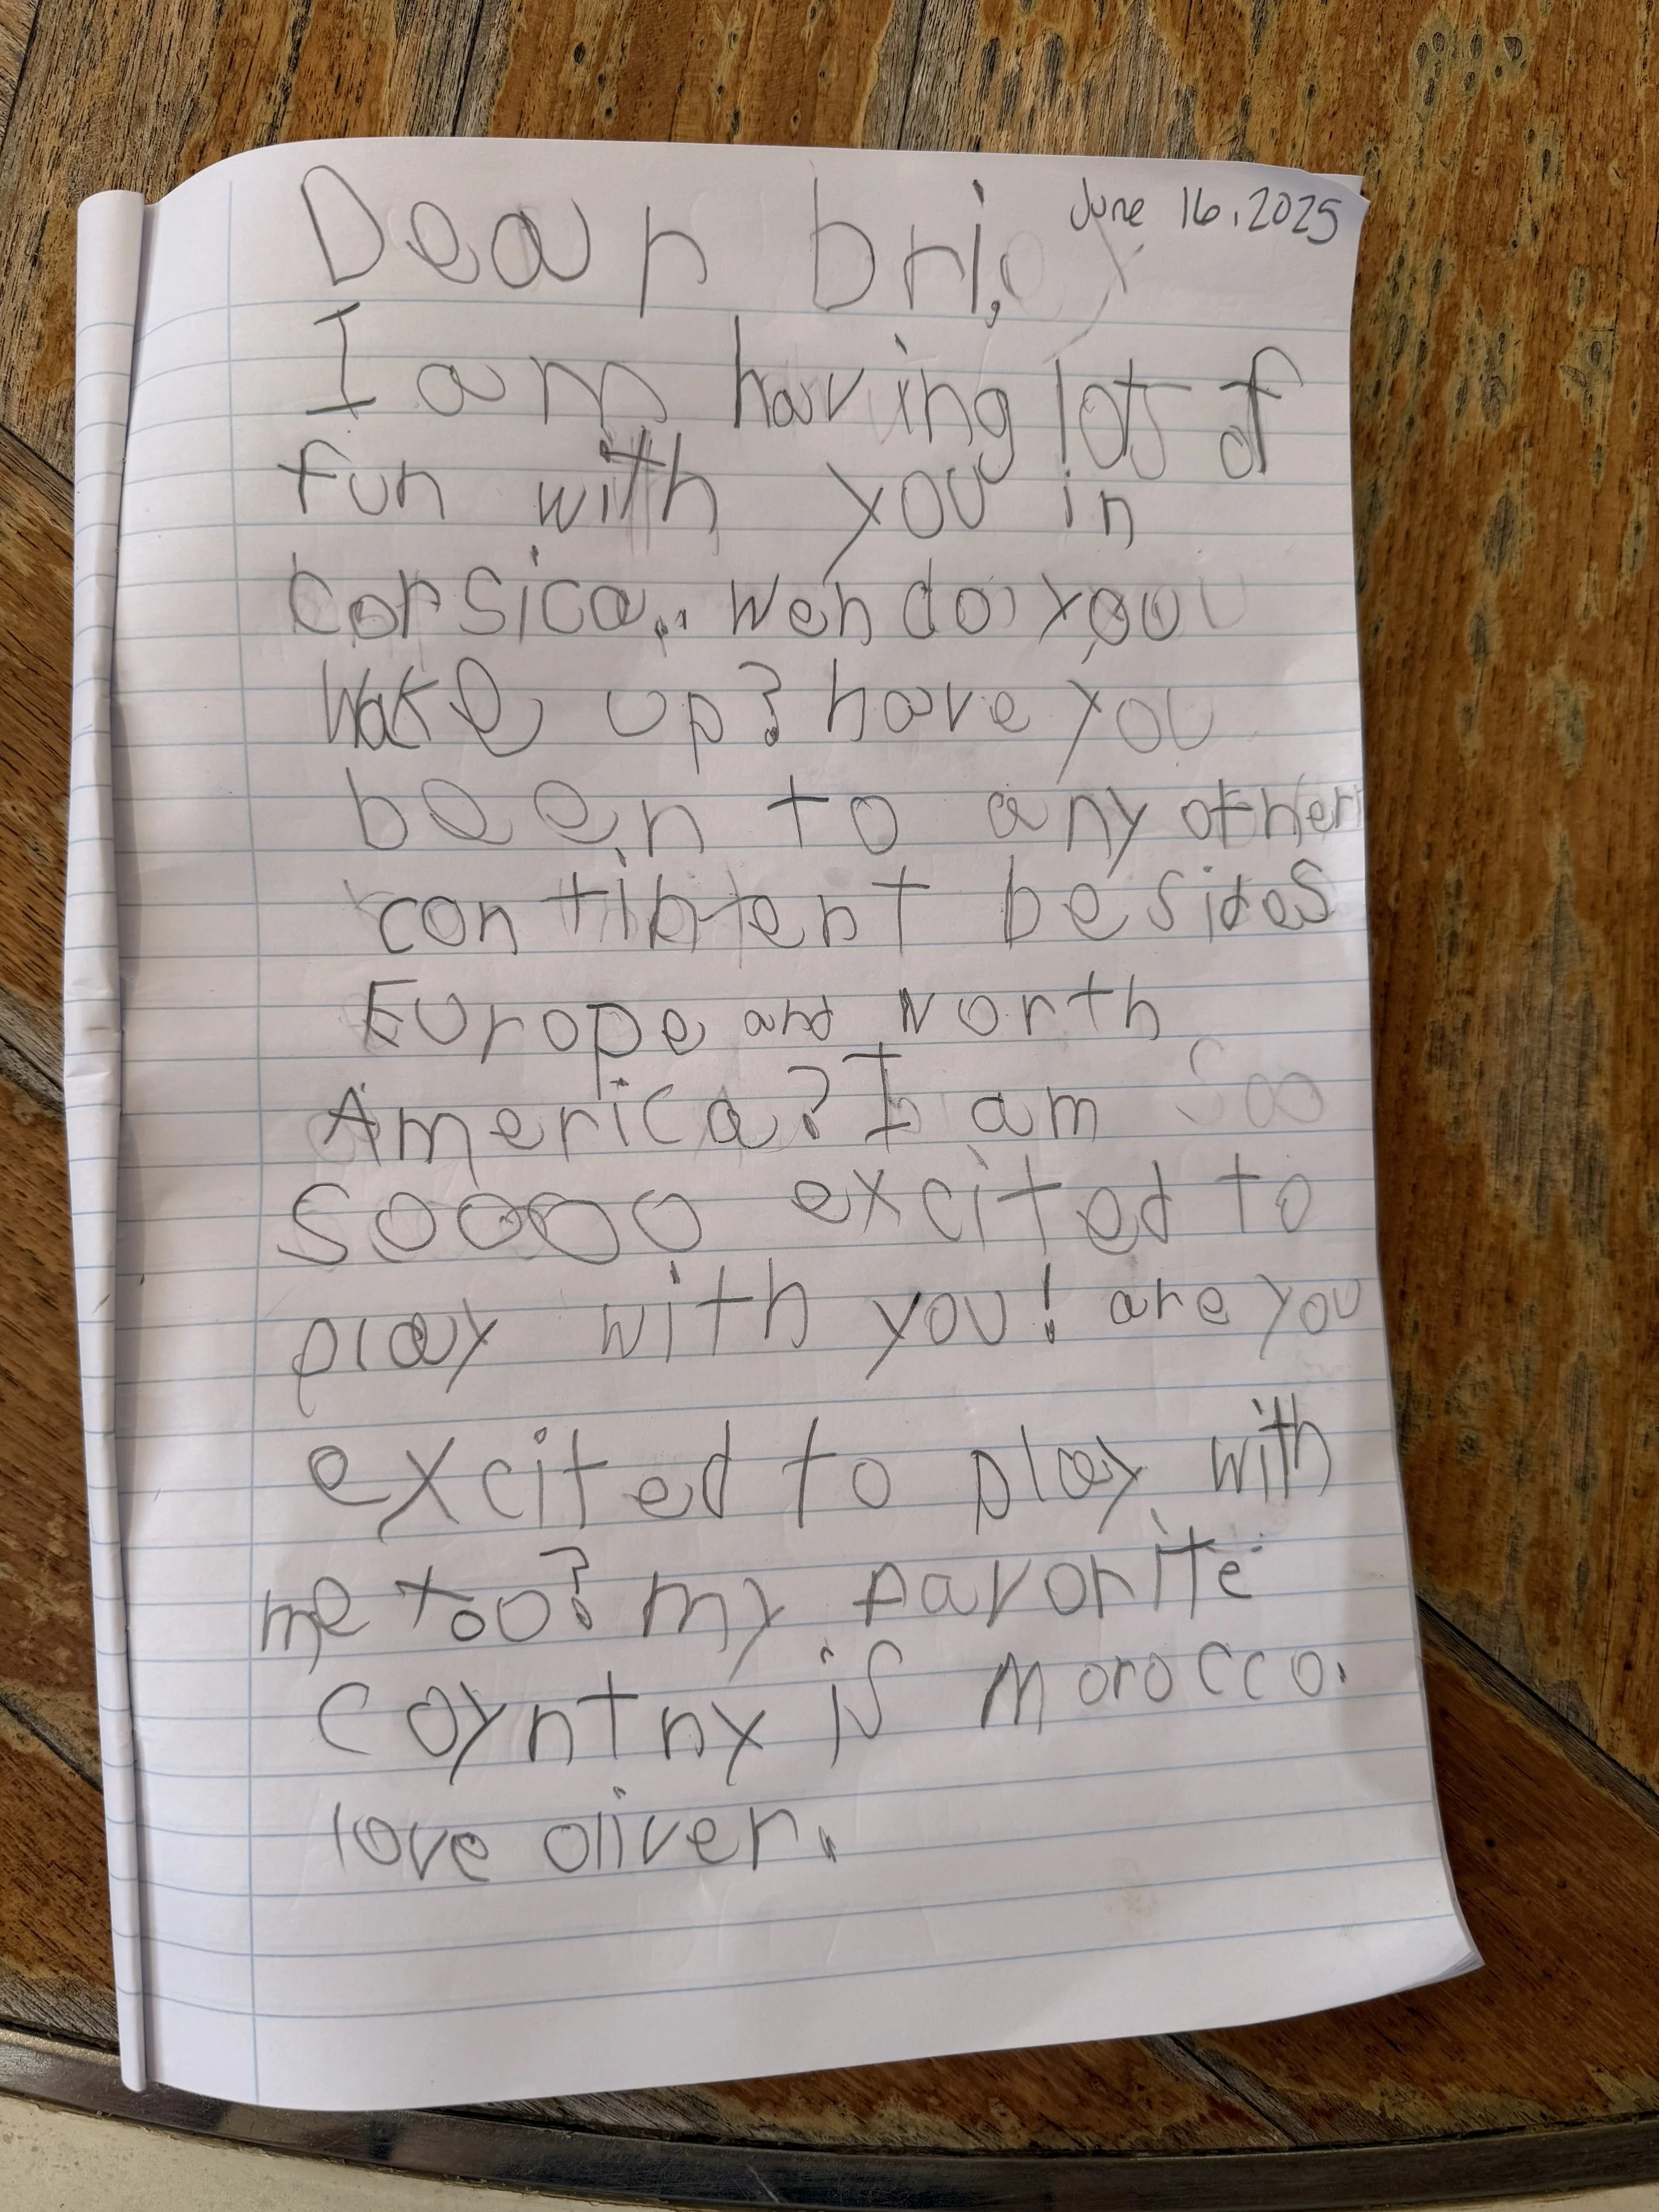 June 16, 2025
Dear bri,
I am having lots of
fun with you in
corsica. wen do you
wake up? have you
been to any other
contintent besides
Europe and North
America? I am
soooo excited to
play with you! are you
excited to play with
me too? my favorite
coyntry is Morocco.
love oliver.